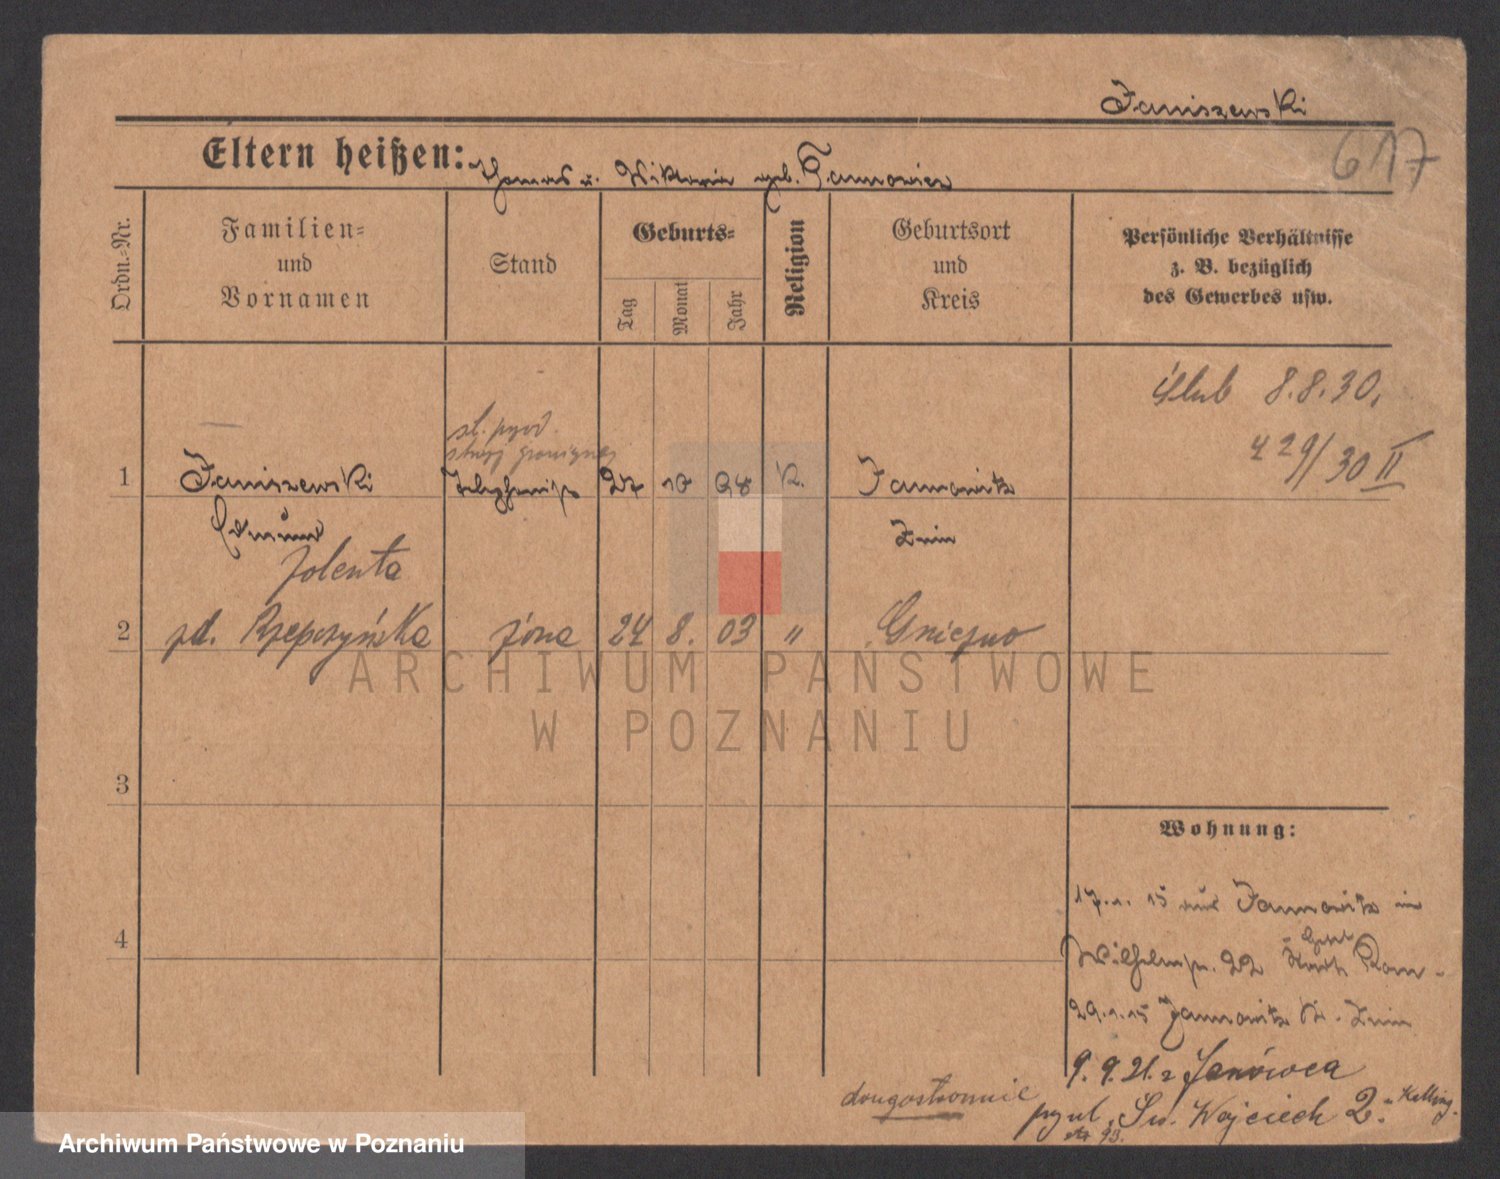 Janiszewski
617
Eltern heißen: Thomas u. Wiktoria geb. Janowicz
Ordn.-Nr.
Familien-
und
Vornamen
Stand
Geburts-
Tag
Monat
Jahr
Religion
Geburtsort
und
Kreis
Persönliche Verhältnisse
z. B. bezüglich
des Gewerbes usw.
ślub 8.8.30,
429/30 II
1 Janiszewski 27 10 98 K. Jannowitz
Edmund Znin
Jolenta
2 zd. Rzepczyńska żona 24 8. 03 " Gniezno
3
4
Wohnung:
17.1.15 aus Jannowitz in
Wilhelmstr. 22
29.1.15 Jannowitz Kr. Znin
9.9.21. z Janówca
przy ul. Św. Wojciech 2.
drugostronnie
ARCHIWUM PAŃSTWOWE
W POZNANIU
Archiwum Państwowe w Poznaniu